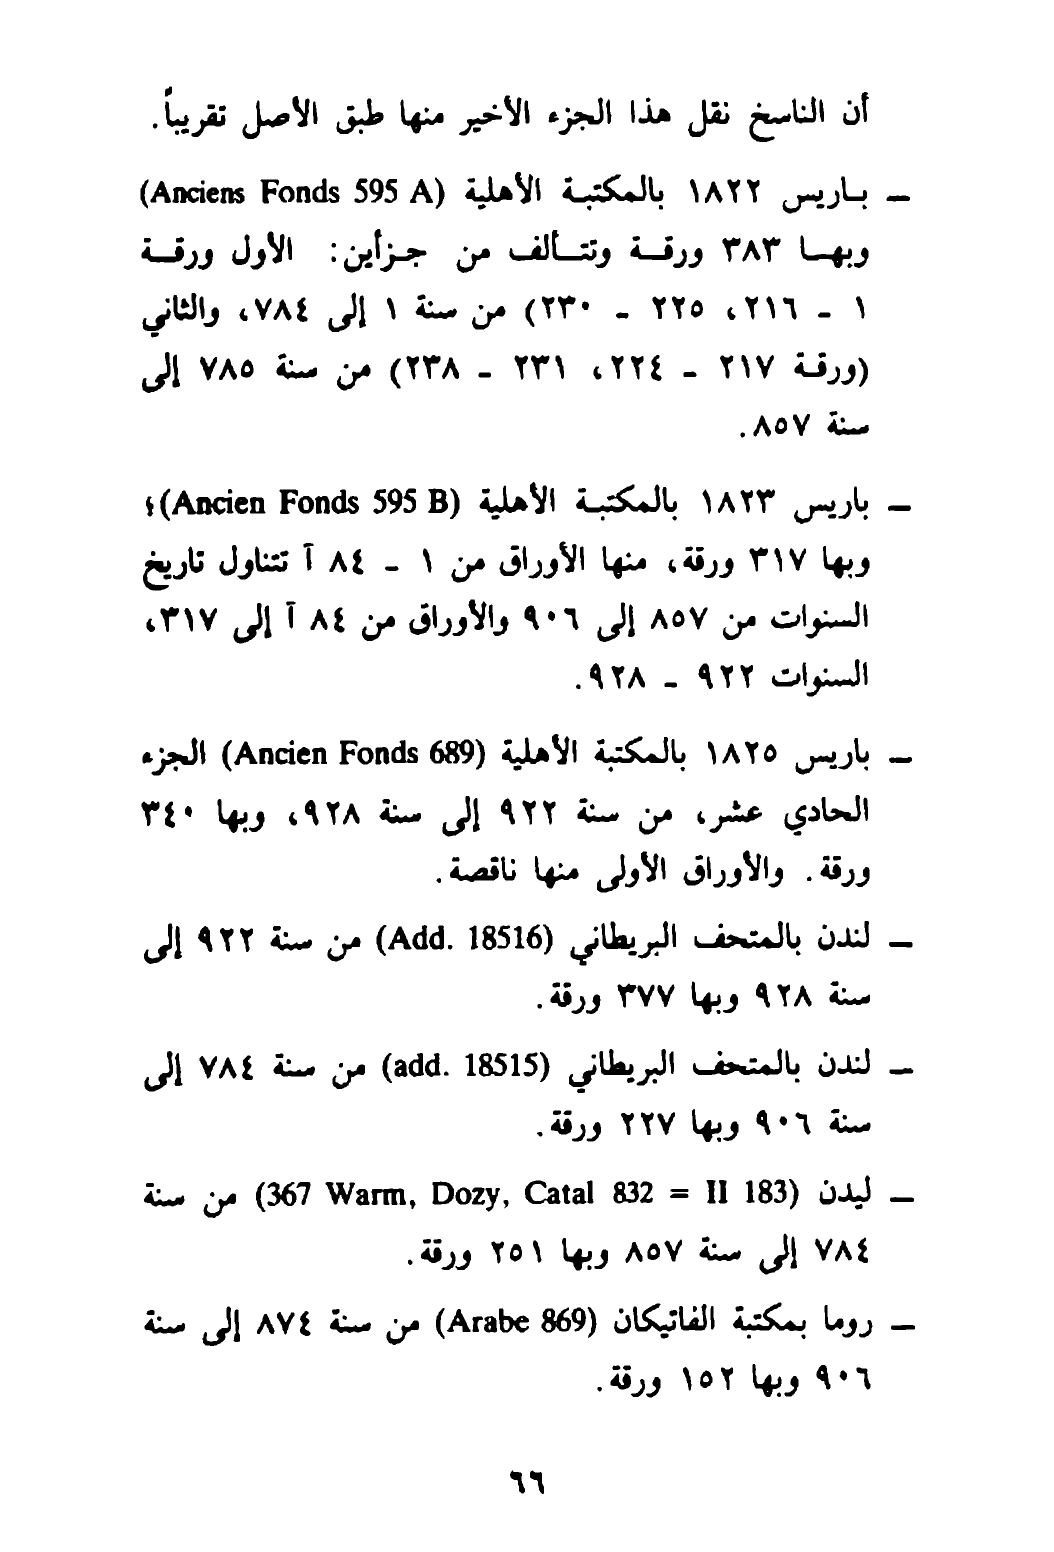 أن الناسخ نقل هذا الجزء الأخير منها طبق الأصل تقريباً.
– بـاريس ١٨٢٢ بالمكتبـة الأهلية (Anciens Fonds 595 A)
وبهـا ٣٨٣ ورقـة وتتـألف من جـزأين: الأول ورقـة
١ - ٢١٦، ٢٢٥ - ٢٣٠) من سنة ١ إلى ٧٨٤، والثاني
(ورقـة ٢١٧ - ٢٢٤، ٢٣١ - ٢٣٨) من سنة ٧٨٥ إلى
سنة ٨٥٧.
– باريس ١٨٢٣ بالمكتبـة الأهلية (Ancien Fonds 595 B)؛
وبها ٣١٧ ورقة، منها الأوراق من ١ - ٨٤ آ تتناول تاريخ
السنوات من ٨٥٧ إلى ٩٠٦ والأوراق من ٨٤ آ إلى ٣١٧،
السنوات ٩٢٢ - ٩٢٨.
– باريس ١٨٢٥ بالمكتبة الأهلية (Ancien Fonds 689) الجزء
الحادي عشر، من سنة ٩٢٢ إلى سنة ٩٢٨، وبها ٣٤٠
ورقة. والأوراق الأولى منها ناقصة.
– لندن بالمتحف البريطاني (Add. 18516) من سنة ٩٢٢ إلى
سنة ٩٢٨ وبها ٣٧٧ ورقة.
– لندن بالمتحف البريطاني (add. 18515) من سنة ٧٨٤ إلى
سنة ٩٠٦ وبها ٢٢٧ ورقة.
– ليدن (367 Warm, Dozy, Catal 832 = II 183) من سنة
٧٨٤ إلى سنة ٨٥٧ وبها ٢٥١ ورقة.
– روما بمكتبة الفاتيكان (Arabe 869) من سنة ٨٧٤ إلى سنة
٩٠٦ وبها ١٥٢ ورقة.
٦٦